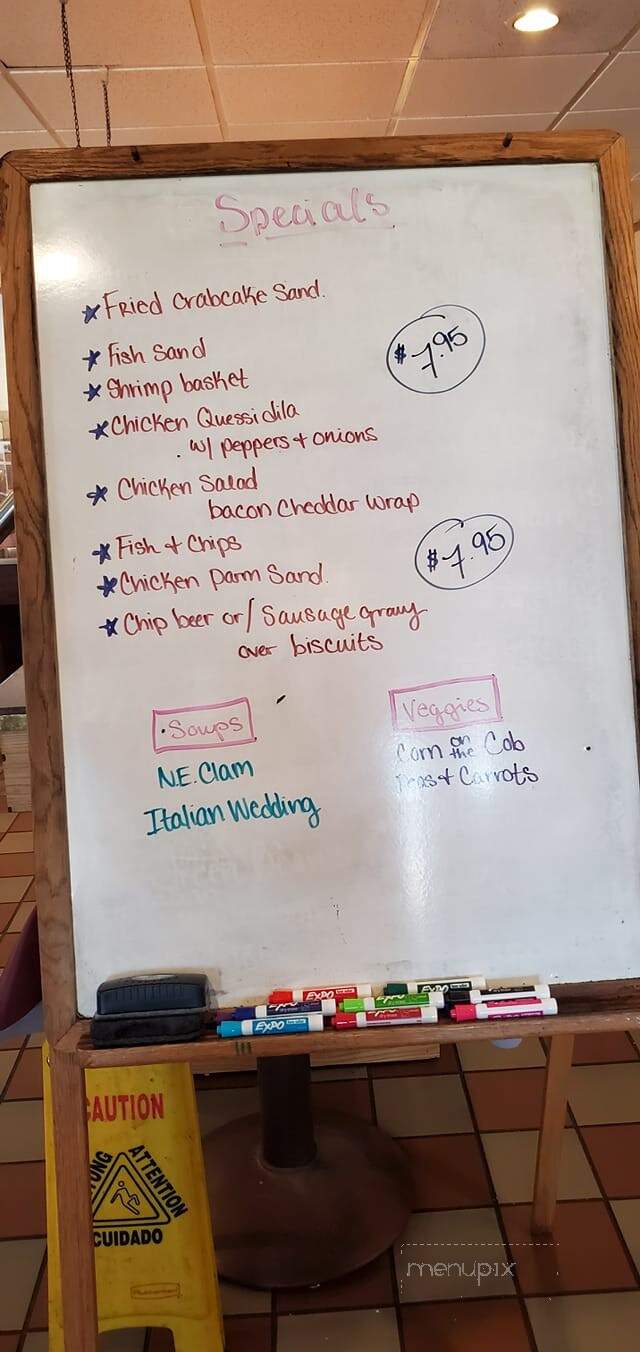 Specials
Fried Crabcake Sand.
Fish Sand
$7.95
Shrimp basket
Chicken Quessidila
w/ peppers + onions
Chicken Salad
bacon Cheddar Wrap
Fish + Chips
$7.95
Chicken Parm Sand.
Chip beef or/ Sausage gravy
over biscuits
Soups
N.E. Clam
Italian Wedding
Veggies
Corn on the Cob
Peas + Carrots
EXPO
EXPO
EXPO
CAUTION
ATTENTION
CUIDADO
Rubbermaid
menupix